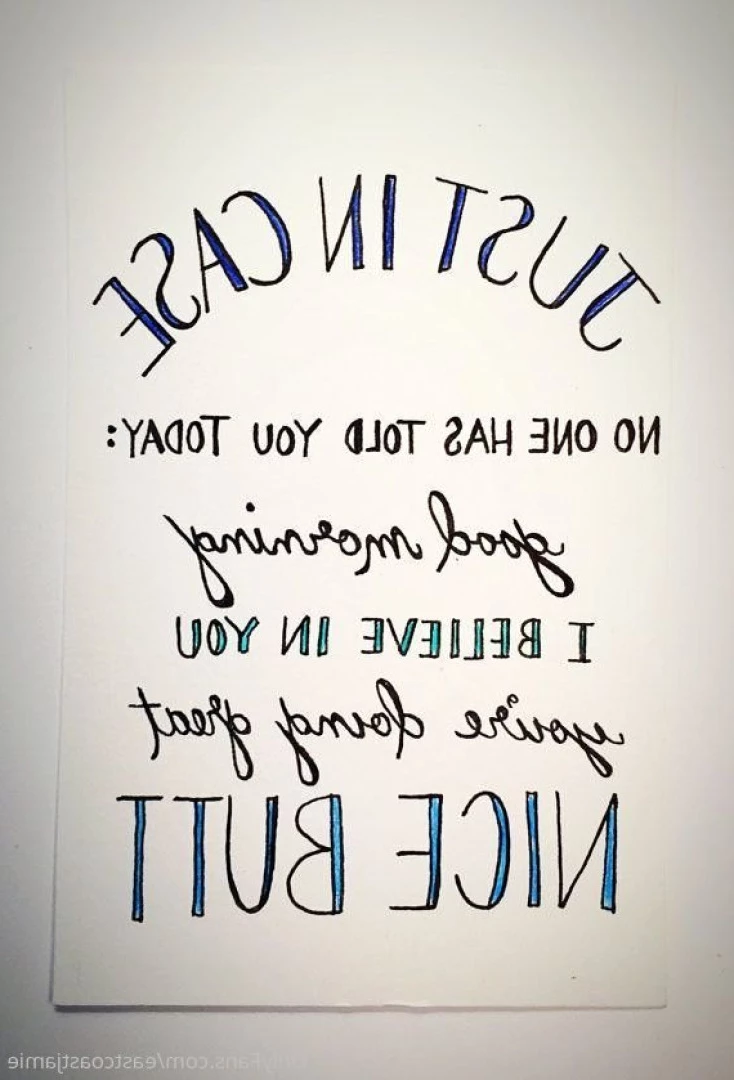 JUST IN CASE
NO ONE HAS TOLD YOU TODAY:
good morning
I BELIEVE IN YOU
you're doing great
NICE BUTT
OnlyFans.com/eastcoastjamie